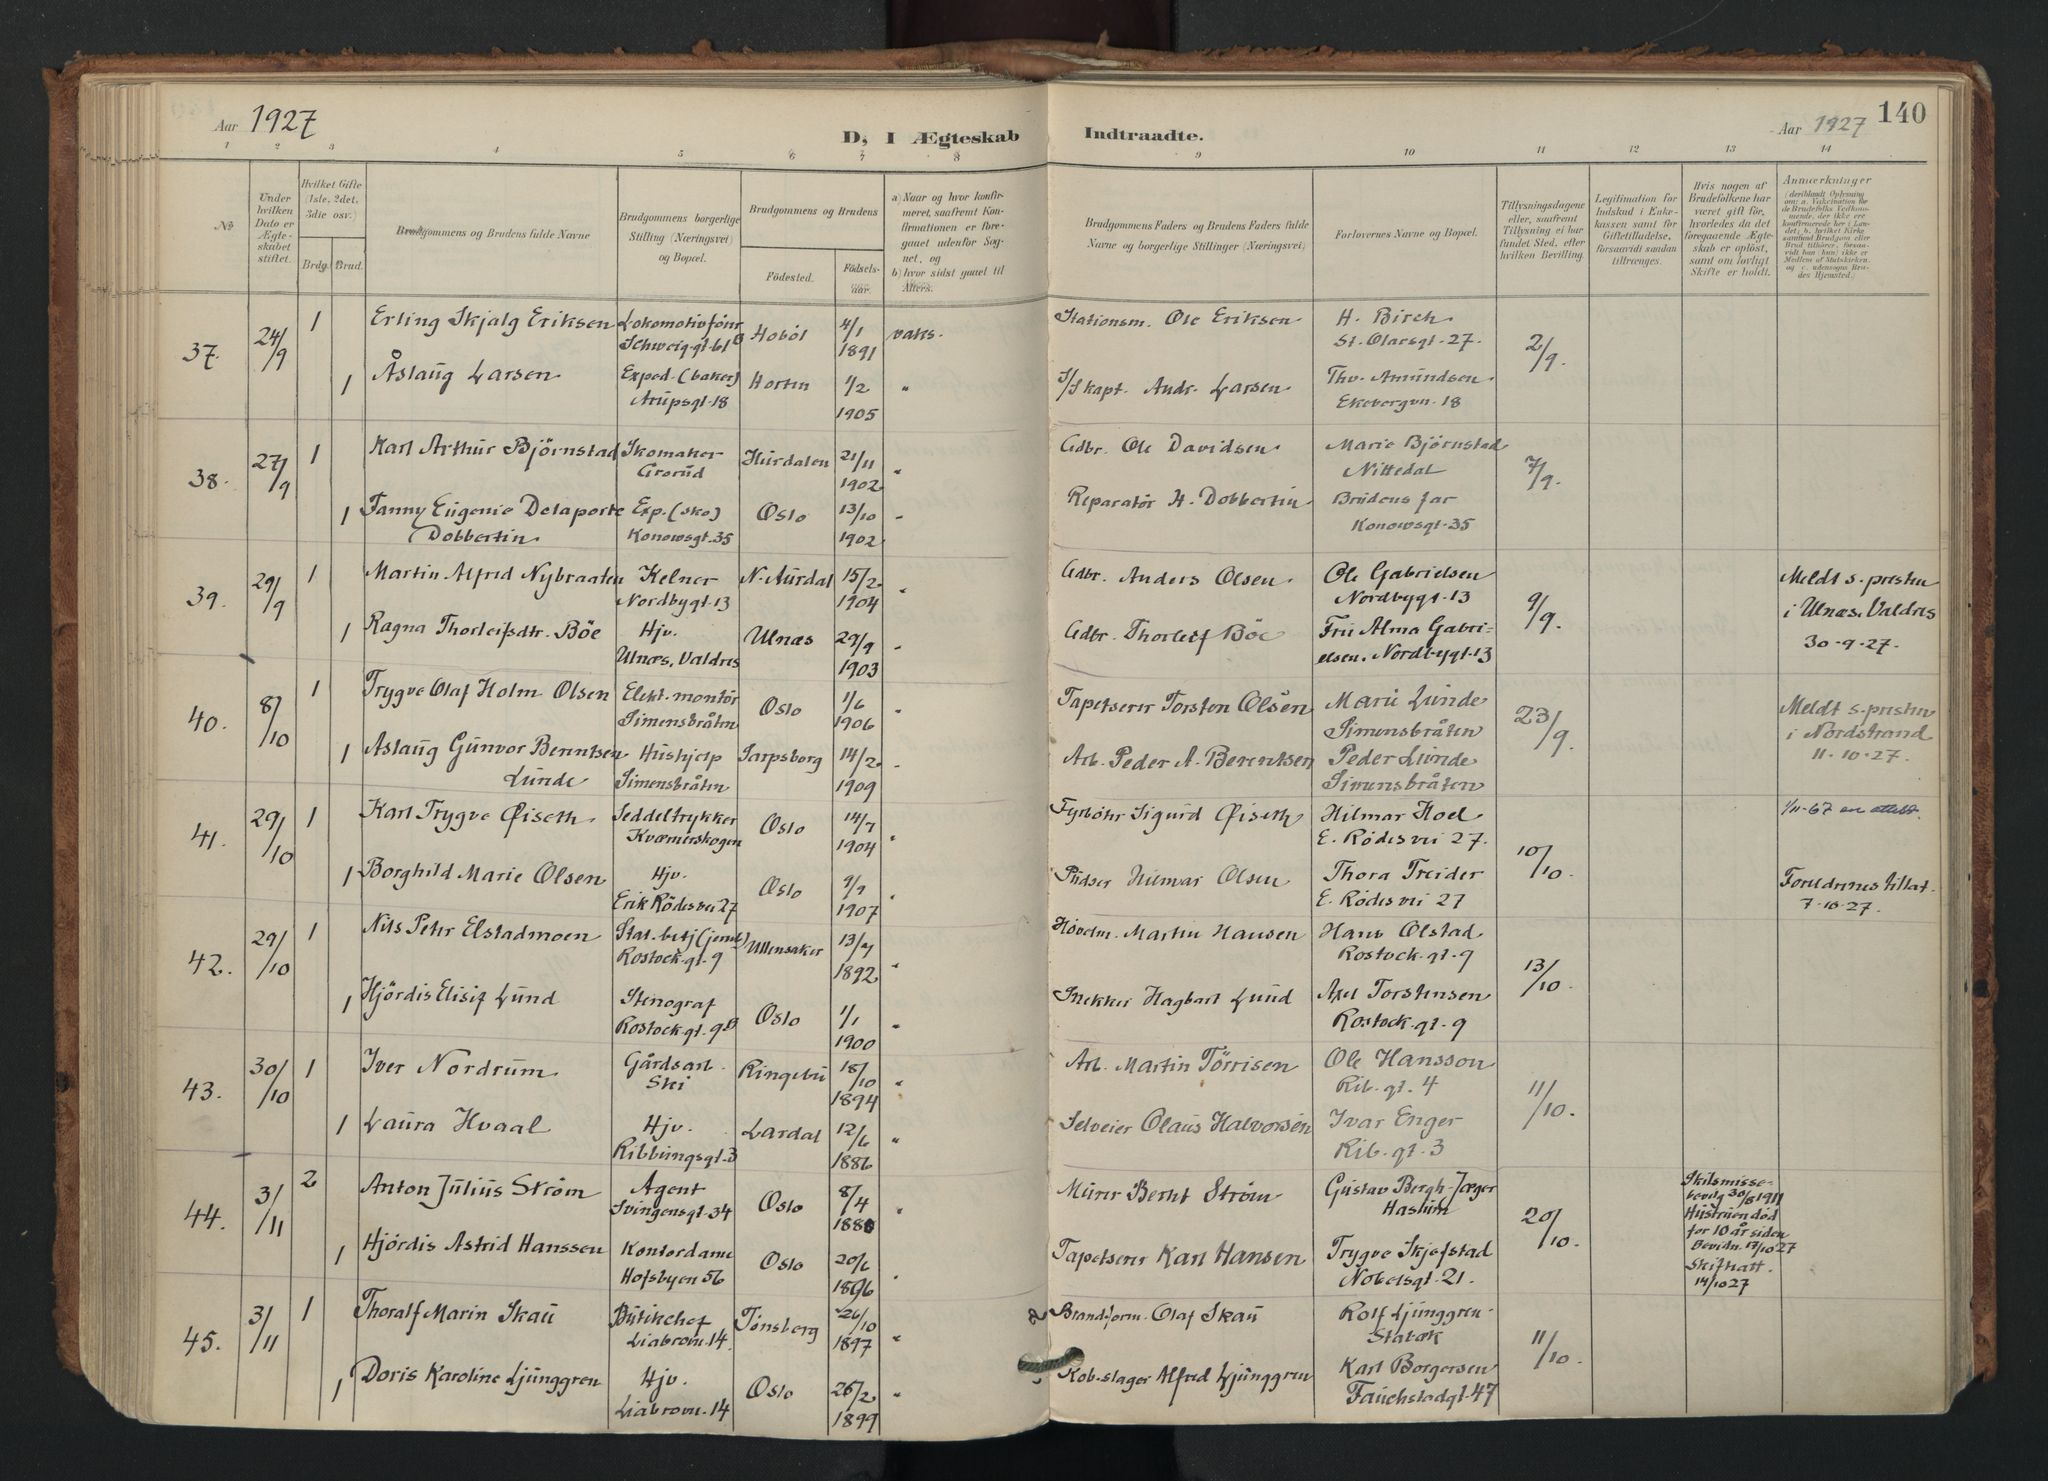 Aar 1927
D, I Ægteskab Indtraadte.
Aar 1927
140
1 2 3 4 5 6 7 8 9 10 11 12 13 14
No
Under hvilken Dato er Ægteskabet stiftet.
Hvilket Gifte (1ste, 2det, 3die osv.)
Brdg. Brud.
Brudgommens og Brudens fulde Navne
Brudgommens borgerlige Stilling (Næringsvei) og Bopæl.
Brudgommens og Brudens
Fødested. Fødselsaar.
a) Naar og hvor konfirmeret, saafremt Konfirmationen er foregaaet udenfor Sognet, og
b) hvor sidst gaaet til Alters.
Brudgommens Faders og Brudens Faders fulde Navne og borgerlige Stillinger (Næringsvei)
Forlovernes Navne og Bopæl.
Tillysningsdagene eller, saafremt Tillysning ei har fundet Sted, efter hvilken Bevilling.
Legitimation for Indskud i Enkekassen samt for Giftetilladelse, forsaavidt saadan tiltrænges.
Hvis nogen af Brudefolkene har været gift før, hvorledes da det foregaaende Ægteskab er opløst, samt om lovligt Skifte er holdt.
Anmærkninger
(deriblandt Oplysning om: a. Vakcination for de Brudefolks Vedkommende, der ikke ere konfirmerede her i Landet; b. hvilket Kirkesamfund Brudgom eller Brud tilhører, forsaavidt han (hun) ikke er Medlem af Statskirken, og c. udensogns Brudes Hjemsted.)
37. 24/9 1 Erling Skjalg Eriksen Lokomotivfönr Schweig.gt. 61 B Hobøl 4/1 1891 vaks. Stationsm. Ole Eriksen H. Birch St. Olavsgt. 27. 2/9.
1 Åslaug Larsen Exped. (baker) Arupsgt. 18 Horten 1/2 1905 " S/Skapt. Andr. Larsen Thv. Amundsen Ekebergvn. 18
38. 27/9 1 Karl Arthur Björnstad Skomaker Grorud Hurdalen 21/11 1902 " Gdbr. Ole Davidsen Marie Björnstad Nittedal 7/9.
1 Fanny Eugenie Delaporte Dobbertin Exp. (sko) Konowsgt. 35 Oslo 13/10 1902 " Reparatör H. Dobbertin Brudens far Konowsgt. 35
39. 29/9 1 Martin Alfred Nybraaten Kelner Nordbygt. 13 N. Aurdal 15/2 1904 " Gdbr. Anders Olsen. Ole Gabrielsen Nordbygt. 13 9/9. Meldt s.presten i Ulnæs, Valdres 30-9-27.
1 Ragna Thorleifsdtr. Böe Hjv. Ulnæs, Valdres Ulnæs 29/9 1903 " Gdbr. Thorleif Böe Fru Alma Gabrielsen. Nordbygt. 13
40. 8/10 1 Trygve Olaf Holm Olsen Elekt. montör Simensbråten Oslo 1/6 1906 " Tapetserer Torsten Olsen Marie Lunde Simensbråten 23/9. Meldt s.presten i Nordstrand 11-10-27.
1 Aslaug Gunvor Berentsen Lunde Hushjelp Simensbråten Sarpsborg 14/2 1909 " Arb. Peder A. Berentsen Peder Lunde Simensbråten
41. 29/10 1 Karl Trygve Øiseth Seddeltrykker Kværnerskogen Oslo 14/7 1904 " Fyrböter Sigurd Øiseth Hilmar Hoel E. Rödesvei 27. 10/10. 1/11-67 en attest.
1 Borghild Marie Olsen Hjv. Erik Rödesvei 27 Oslo 9/9 1907 " Pudser Hilmar Olsen Thora Treider E. Rödesvei 27 Foreldrenes tillat. 7-10-27.
42. 29/10 1 Nils Peter Elstadmoen Stat.betj (jernb) Rostockgt. 9 Ullensaker 13/7 1892 " Høvelm. Martin Hansen Hans Olstad Rostockgt. 9 13/10.
1 Hjördis Elisif Lund Stenograf Rostockgt. 9 B Oslo 1/1 1900 " Snekker Hagbart Lund Axel Torstensen Rostockgt. 9
43. 30/10 1 Iver Nordrum Gårdsarb. Ski Ringebu 18/10 1894 " Arb. Martin Törrisen Ole Hansson Rib. gt. 4 11/10.
1 Laura Hvaal Hjv. Ribbungsgt. 3 Lardal 12/6 1886 " Selveier Olaus Halvorsen Ivar Enger Rib. gt. 3
44. 3/11 2 Anton Julius Ström Agent Svingensgt. 34 Oslo 8/4 " Murer Bernt Ström Gustav Bergh-Jæger Haslum 20/10. Skilsmissebevilg 30/8 1911 Hustruen död for 10 år siden Bevidn. 17/10 27 Skifteatt. 14/10 27
1 Hjördis Astrid Hanssen Kontordame Hofsbyen 56 Oslo 20/6 1896 " Tapetserer Karl Hansen Trygve Skjefstad Nobelsgt. 21.
45. 3/11 1 Thoralf Marin Skau Butikchef Liabrovn. 14 Tönsberg 26/10 1897 " Brandform. Olaf Skau Rolf Ljunggren. Stabæk 11/10.
1 Doris Karoline Ljunggren Hjv. Liabrovn. 14 Oslo 26/2 1899 " Kob.slager Alfred Ljunggren Karl Borgersen Fauchstadgt. 47